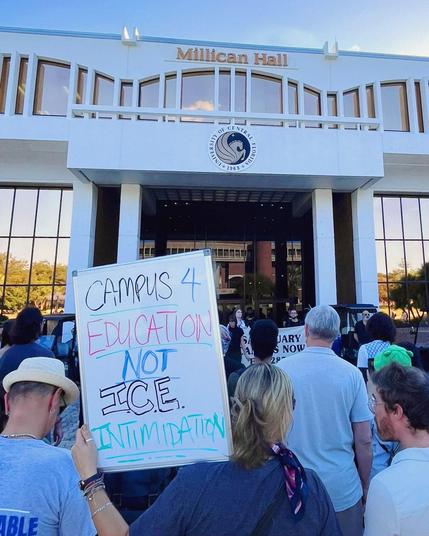 Millican Hall
UNIVERSITY OF CENTRAL FLORIDA
1963
CAMPUS 4
EDUCATION
NOT
I.C.E.
INTIMIDATION
NOW
ABLE